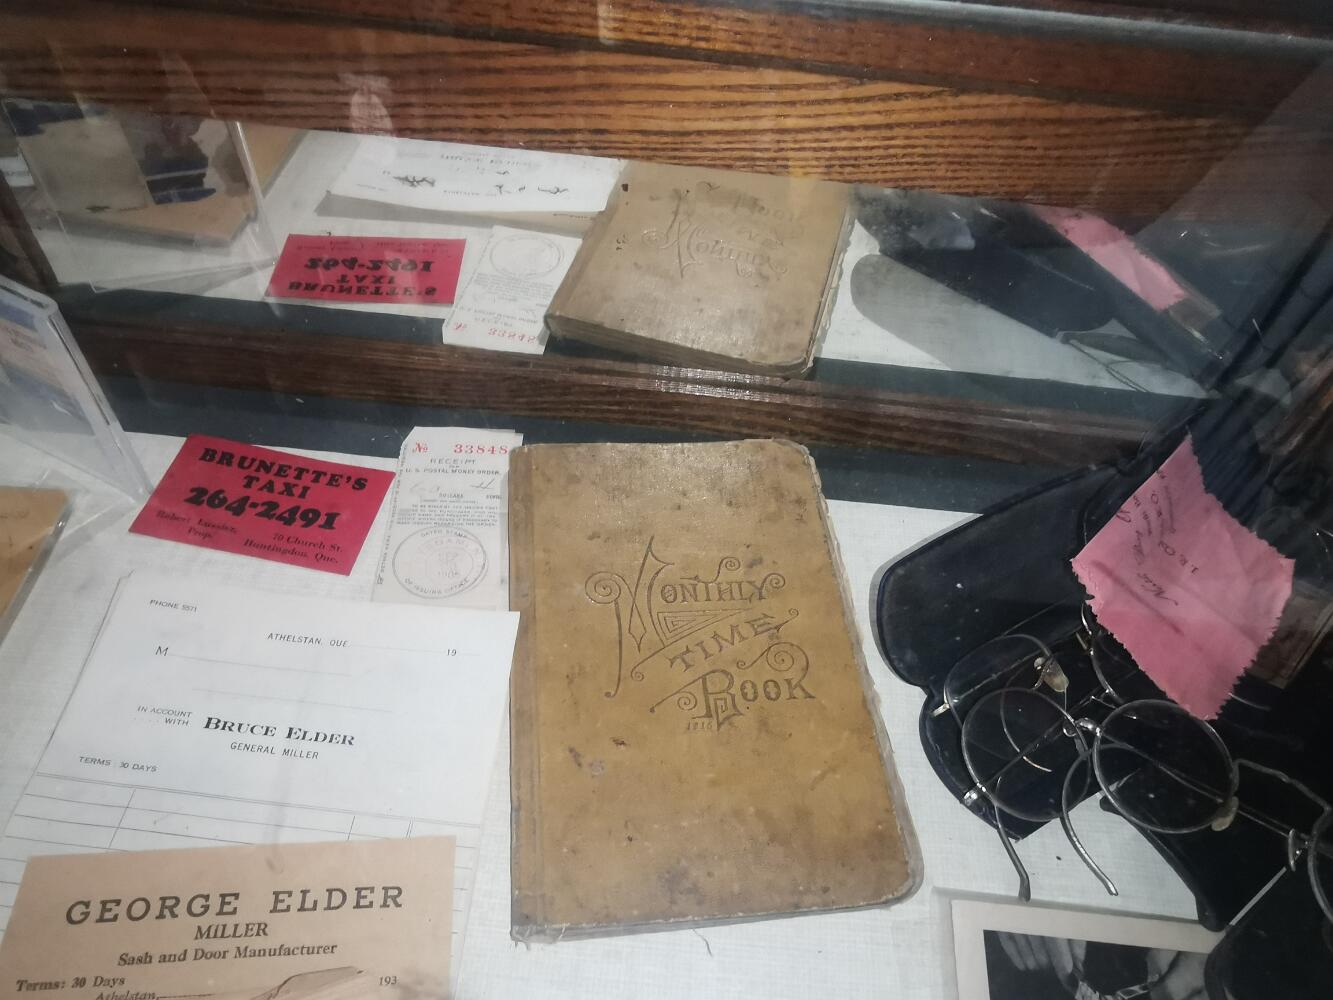 BRUNETTE'S
TAXI
264-2491
Robert Lussier,
Prop.
70 Church St.
Huntingdon, Que.
No 33848
RECEIPT
FOR
U. S. POSTAL MONEY ORDER.
DOLLARS
DATED STAMP
OF ISSUING OFFICE
PHONE 5571
ATHELSTAN, QUE. 19
M
IN ACCOUNT
WITH
BRUCE ELDER
GENERAL MILLER
TERMS : 30 DAYS
GEORGE ELDER
MILLER
Sash and Door Manufacturer
Terms: 30 Days
Athelstan, 193
MONTHLY
TIME
BOOK